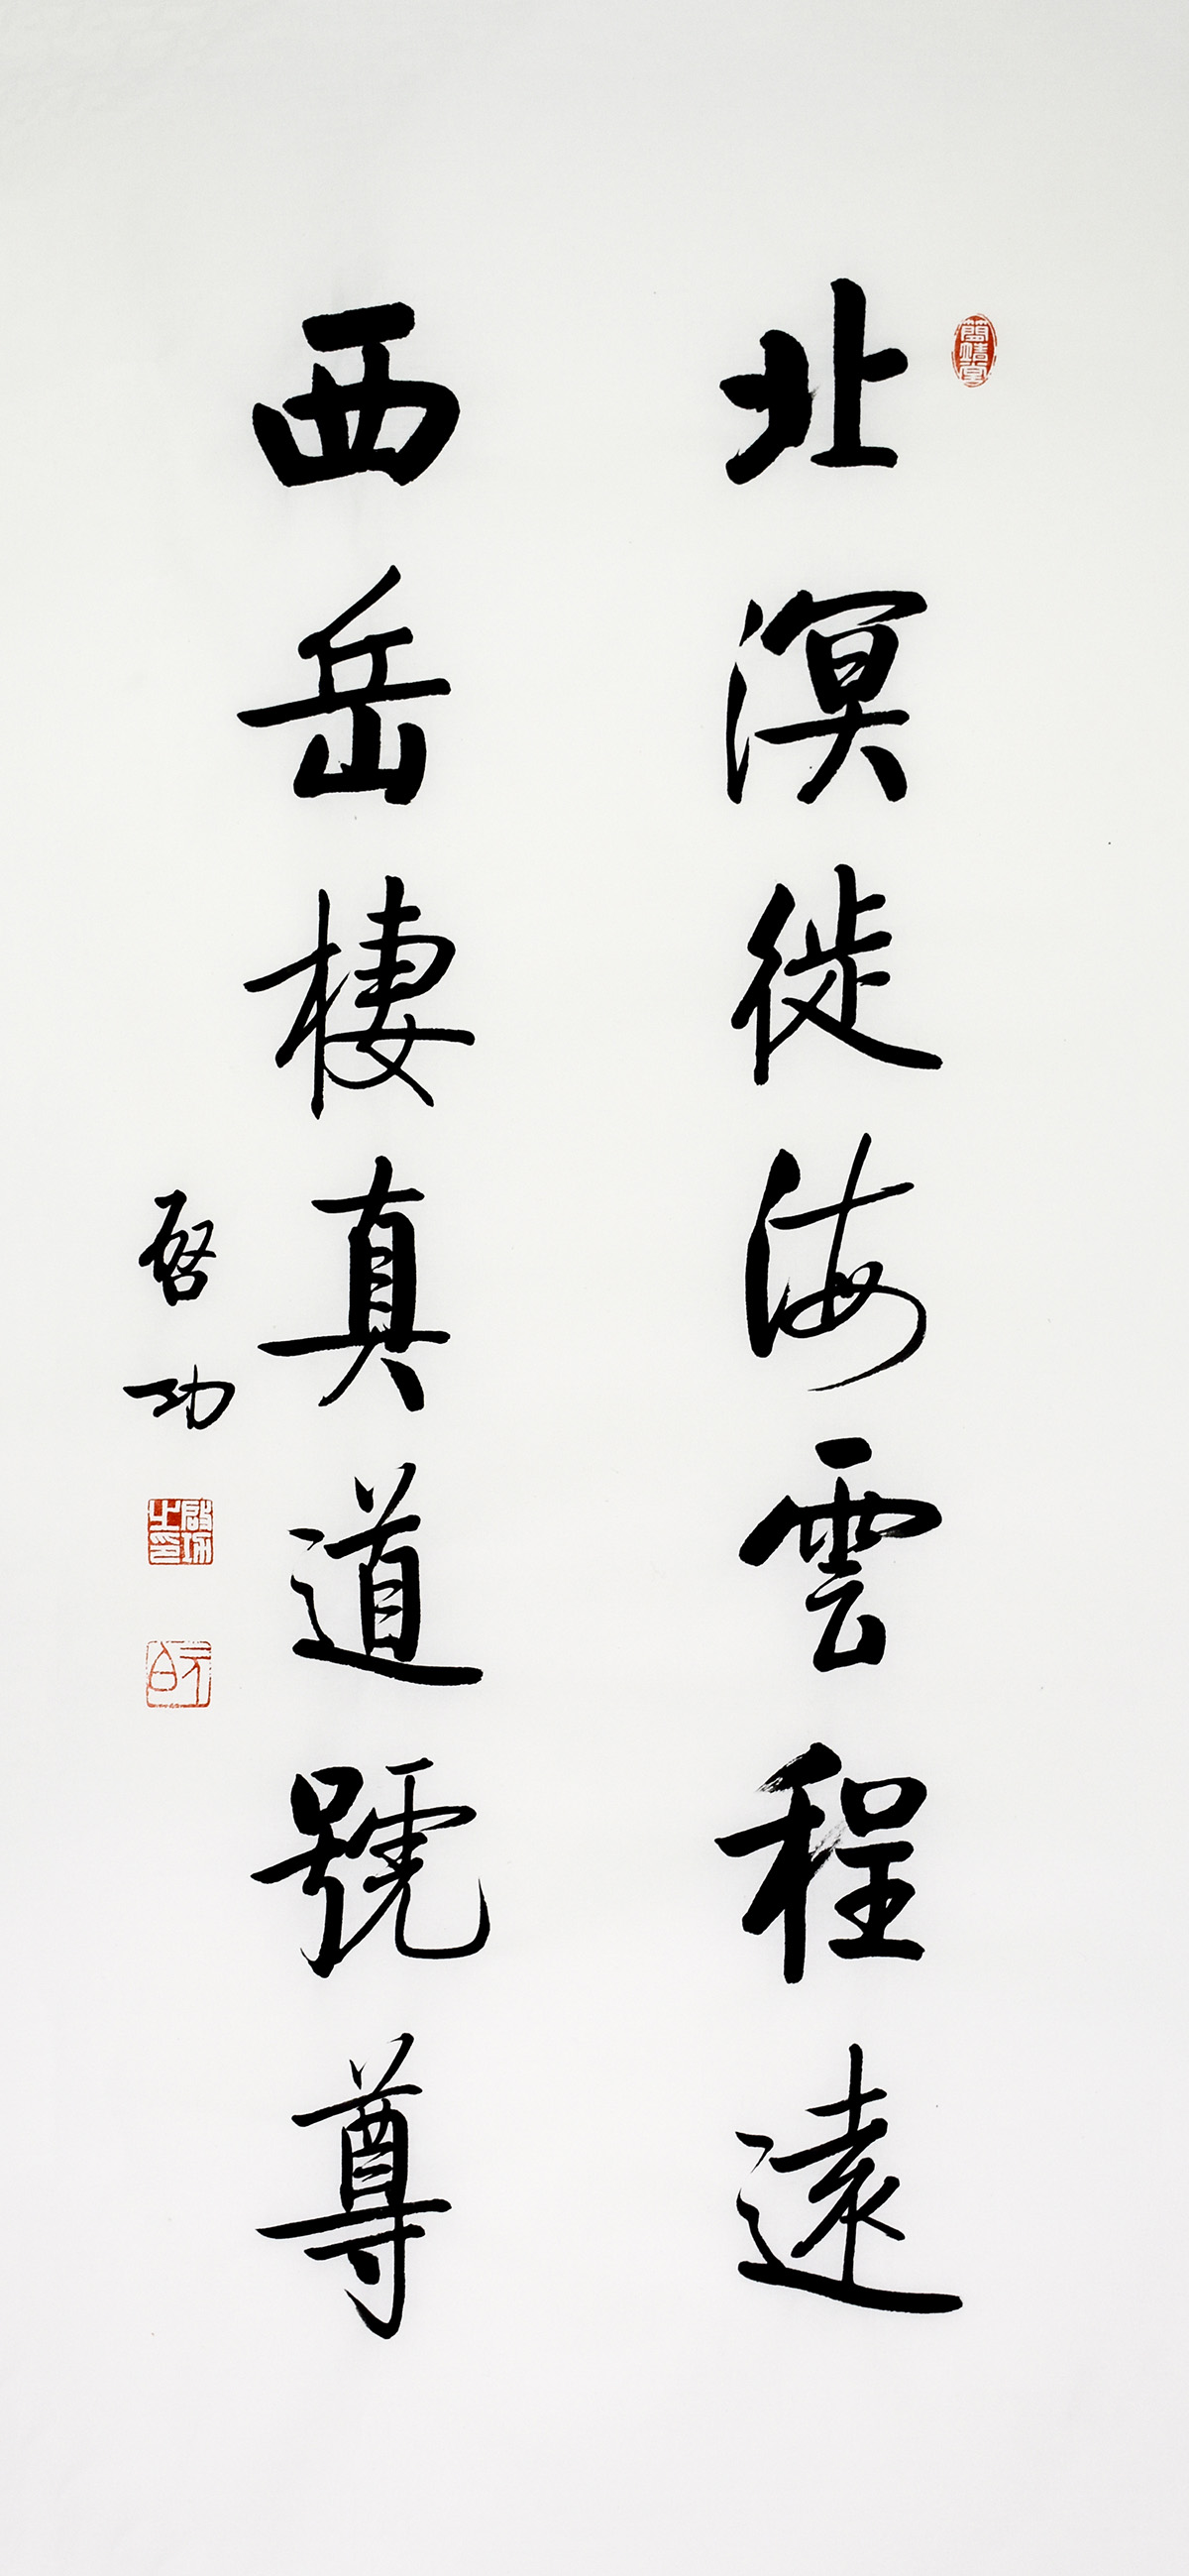 北溟徙海雲程遠
西岳棲真道號尊
啓功
啟功之印
元白